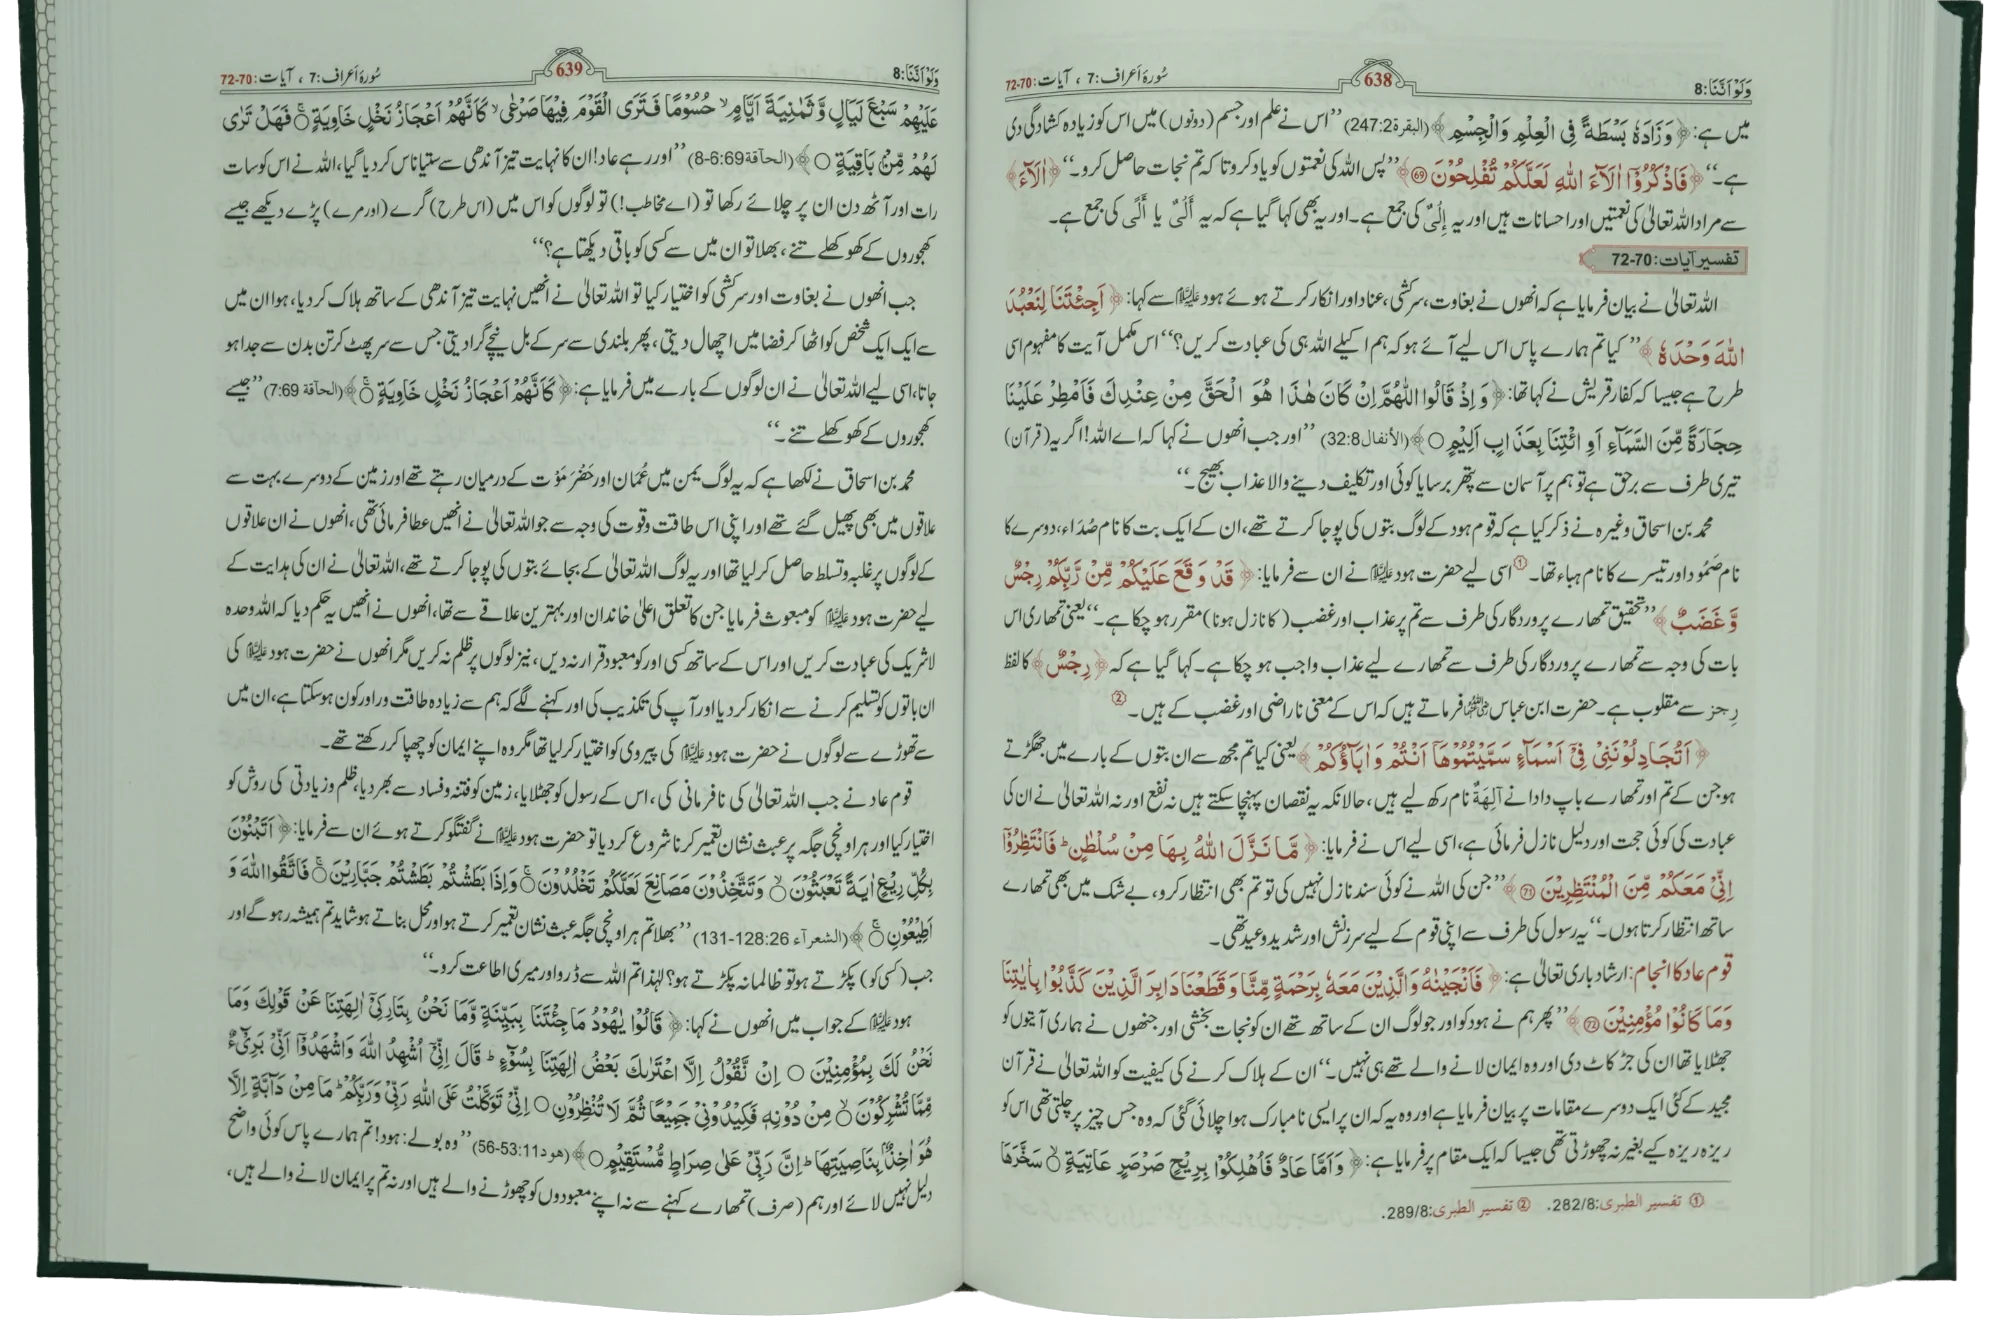 وَلَوْ اَنَّنَا:8
638
سُورۂ اَعراف:7 ، آیات:70-72
میں ہے: ﴿وَزَادَهٗ بَسْطَةً فِی الْعِلْمِ وَالْجِسْمِ﴾(البقرة247:2) ’’اس نے علم اور جسم (دونوں) میں اس کو زیادہ کشادگی دی
ہے۔‘‘ ﴿فَاذْكُرُوْۤا اٰلَآءَ اللّٰهِ لَعَلَّكُمْ تُفْلِحُوْنَ ۶۹﴾ ’’پس اللہ کی نعمتوں کو یاد کرو تا کہ تم نجات حاصل کرو۔‘‘ ﴿اٰلَآءَ﴾
سے مراد اللہ تعالیٰ کی نعمتیں اور احسانات ہیں اور یہ إِلًی کی جمع ہے۔ اور یہ بھی کہا گیا ہے کہ یہ أَلْیٌ یا أَلًی کی جمع ہے۔
تفسیر آیات:70-72
اللہ تعالیٰ نے بیان فرمایا ہے کہ انھوں نے بغاوت، سرکشی، عناد اور انکار کرتے ہوئے ہود علیہ السلام سے کہا: ﴿اَجِئْتَنَا لِنَعْبُدَ
اللّٰهَ وَحْدَهٗ﴾ ’’کیا تم ہمارے پاس اس لیے آئے ہو کہ ہم اکیلے اللہ ہی کی عبادت کریں؟‘‘ اس مکمل آیت کا مفہوم اسی
طرح ہے جیسا کہ کفار قریش نے کہا تھا: ﴿وَاِذْ قَالُوا اللّٰهُمَّ اِنْ كَانَ هٰذَا هُوَ الْحَقَّ مِنْ عِنْدِكَ فَاَمْطِرْ عَلَيْنَا
حِجَارَةً مِّنَ السَّمَآءِ اَوِ ائْتِنَا بِعَذَابٍ اَلِيْمٍ ○﴾(الأنفال32:8) ’’اور جب انھوں نے کہا کہ اے اللہ! اگر یہ (قرآن)
تیری طرف سے برحق ہے تو ہم پر آسمان سے پتھر برسا یا کوئی اور تکلیف دینے والا عذاب بھیج۔‘‘
محمد بن اسحاق وغیرہ نے ذکر کیا ہے کہ قوم ہود کے لوگ بتوں کی پوجا کرتے تھے، ان کے ایک بت کا نام صُدَاء، دوسرے کا
نام صَمُود اور تیسرے کا نام ہباء تھا۔① اسی لیے حضرت ہود علیہ السلام نے ان سے فرمایا: ﴿قَدْ وَقَعَ عَلَيْكُمْ مِّنْ رَّبِّكُمْ رِجْسٌ
وَّغَضَبٌ﴾ ’’تحقیق تمھارے پروردگار کی طرف سے تم پر عذاب اور غضب (کا نازل ہونا) مقرر ہو چکا ہے۔‘‘ یعنی تمھاری اس
بات کی وجہ سے تمھارے پروردگار کی طرف سے تمھارے لیے عذاب واجب ہو چکا ہے۔ کہا گیا ہے کہ ﴿رِجْسٌ﴾ کا لفظ
رِجز سے مقلوب ہے۔ حضرت ابن عباس رضی اللہ عنہما فرماتے ہیں کہ اس کے معنی ناراضی اور غضب کے ہیں۔②
﴿اَتُجَادِلُوْنَنِيْ فِيْۤ اَسْمَآءٍ سَمَّيْتُمُوْهَاۤ اَنْتُمْ وَاٰبَآؤُكُمْ﴾ یعنی کیا تم مجھ سے ان بتوں کے بارے میں جھگڑتے
ہو جن کے تم اور تمھارے باپ دادا نے آلِهَةٌ نام رکھ لیے ہیں، حالانکہ یہ نقصان پہنچا سکتے ہیں نہ نفع اور نہ اللہ تعالیٰ نے ان کی
عبادت کی کوئی حجت اور دلیل نازل فرمائی ہے، اسی لیے اس نے فرمایا: ﴿مَّا نَزَّلَ اللّٰهُ بِهَا مِنْ سُلْطٰنٍ ؕ فَانْتَظِرُوْۤا
اِنِّيْ مَعَكُمْ مِّنَ الْمُنْتَظِرِيْنَ ۷۱﴾ ’’جن کی اللہ نے کوئی سند نازل نہیں کی تو تم بھی انتظار کرو، بے شک میں بھی تمھارے
ساتھ انتظار کرتا ہوں۔‘‘ یہ رسول کی طرف سے اپنی قوم کے لیے سرزنش اور شدید وعید تھی۔
قوم عاد کا انجام: ارشاد باری تعالیٰ ہے: ﴿فَاَنْجَيْنٰهُ وَالَّذِيْنَ مَعَهٗ بِرَحْمَةٍ مِّنَّا وَقَطَعْنَا دَابِرَ الَّذِيْنَ كَذَّبُوْا بِاٰيٰتِنَا
وَمَا كَانُوْا مُؤْمِنِيْنَ ۷۲﴾ ’’پھر ہم نے ہود کو اور جو لوگ ان کے ساتھ تھے ان کو نجات بخشی اور جنھوں نے ہماری آیتوں کو
جھٹلایا تھا ان کی جڑ کاٹ دی اور وہ ایمان لانے والے تھے ہی نہیں۔‘‘ ان کے ہلاک کرنے کی کیفیت کو اللہ تعالیٰ نے قرآن
مجید کے کئی ایک دوسرے مقامات پر بیان فرمایا ہے اور وہ یہ کہ ان پر ایسی نامبارک ہوا چلائی گئی کہ وہ جس چیز پر چلتی تھی اس کو
ریزہ ریزہ کیے بغیر نہ چھوڑتی تھی جیسا کہ ایک مقام پر فرمایا ہے: ﴿وَاَمَّا عَادٌ فَاُهْلِكُوْا بِرِيْحٍ صَرْصَرٍ عَاتِيَةٍ ○ سَخَّرَهَا
① تفسیر الطبری:282/8. ② تفسیر الطبری:289/8.
وَلَوْ اَنَّنَا:8
639
سُورۂ اَعراف:7 ، آیات:70-72
عَلَيْهِمْ سَبْعَ لَيَالٍ وَّثَمٰنِيَةَ اَيَّامٍ ۙ حُسُوْمًا فَتَرَى الْقَوْمَ فِيْهَا صَرْعٰى ۙ كَاَنَّهُمْ اَعْجَازُ نَخْلٍ خَاوِيَةٍ ○ فَهَلْ تَرٰى
لَهُمْ مِّنْۢ بَاقِيَةٍ ○﴾(الحآقة6:69-8) ’’اور رہے عاد! ان کا نہایت تیز آندھی سے ستیاناس کر دیا گیا، اللہ نے اس کو سات
رات اور آٹھ دن ان پر چلائے رکھا تو (اے مخاطب!) تو لوگوں کو اس میں (اس طرح) گرے (اور مرے) پڑے دیکھے جیسے
کھجوروں کے کھوکھلے تنے، بھلا تو ان میں سے کسی کو باقی دیکھتا ہے؟‘‘
جب انھوں نے بغاوت اور سرکشی کو اختیار کیا تو اللہ تعالیٰ نے انھیں نہایت تیز آندھی کے ساتھ ہلاک کر دیا، ہوا ان میں
سے ایک ایک شخص کو اٹھا کر فضا میں اچھال دیتی، پھر بلندی سے سر کے بل نیچے گرا دیتی جس سے سر پھٹ کر تن بدن سے جدا ہو
جاتا، اسی لیے اللہ تعالیٰ نے ان لوگوں کے بارے میں فرمایا ہے: ﴿كَاَنَّهُمْ اَعْجَازُ نَخْلٍ خَاوِيَةٍ ○﴾(الحآقة 7:69) ’’جیسے
کھجوروں کے کھوکھلے تنے۔‘‘
محمد بن اسحاق نے لکھا ہے کہ یہ لوگ یمن میں عُمَان اور حَضْرَمَوْت کے درمیان رہتے تھے اور زمین کے دوسرے بہت سے
علاقوں میں بھی پھیل گئے تھے اور اپنی اس طاقت و قوت کی وجہ سے جو اللہ تعالیٰ نے انھیں عطا فرمائی تھی، انھوں نے ان علاقوں
کے لوگوں پر غلبہ و تسلط حاصل کر لیا تھا اور یہ لوگ اللہ تعالیٰ کے بجائے بتوں کی پوجا کرتے تھے، اللہ تعالیٰ نے ان کی ہدایت کے
لیے حضرت ہود علیہ السلام کو مبعوث فرمایا جن کا تعلق اعلیٰ خاندان اور بہترین علاقے سے تھا، انھوں نے انھیں یہ حکم دیا کہ اللہ وحدہ
لا شریک کی عبادت کریں اور اس کے ساتھ کسی اور کو معبود قرار نہ دیں، نیز لوگوں پر ظلم نہ کریں مگر انھوں نے حضرت ہود علیہ السلام کی
ان باتوں کو تسلیم کرنے سے انکار کر دیا اور آپ کی تکذیب کی اور کہنے لگے کہ ہم سے زیادہ طاقت ور اور کون ہو سکتا ہے، ان میں
سے تھوڑے سے لوگوں نے حضرت ہود علیہ السلام کی پیروی کو اختیار کر لیا تھا مگر وہ اپنے ایمان کو چھپا کر رکھتے تھے۔
قوم عاد نے جب اللہ تعالیٰ کی نافرمانی کی، اس کے رسول کو جھٹلایا، زمین کو فتنہ و فساد سے بھر دیا، ظلم و زیادتی کی روش کو
اختیار کیا اور ہر اونچی جگہ پر عبث نشان تعمیر کرنا شروع کر دیا تو حضرت ہود علیہ السلام نے گفتگو کرتے ہوئے ان سے فرمایا: ﴿اَتَبْنُوْنَ
بِكُلِّ رِيْعٍ اٰيَةً تَعْبَثُوْنَ ○ وَتَتَّخِذُوْنَ مَصَانِعَ لَعَلَّكُمْ تَخْلُدُوْنَ ○ وَاِذَا بَطَشْتُمْ بَطَشْتُمْ جَبَّارِيْنَ ○ فَاتَّقُوا اللّٰهَ وَ
اَطِيْعُوْنِ ○﴾(الشعرآء 128:26-131) ’’بھلا تم ہر اونچی جگہ عبث نشان تعمیر کرتے ہو اور محل بناتے ہو شاید تم ہمیشہ رہو گے اور
جب (کسی کو) پکڑتے ہو تو ظالمانہ پکڑتے ہو؟ لہٰذا تم اللہ سے ڈرو اور میری اطاعت کرو۔‘‘
ہود علیہ السلام کے جواب میں انھوں نے کہا: ﴿قَالُوْا يٰهُوْدُ مَا جِئْتَنَا بِبَيِّنَةٍ وَّمَا نَحْنُ بِتَارِكِيْۤ اٰلِهَتِنَا عَنْ قَوْلِكَ وَمَا
نَحْنُ لَكَ بِمُؤْمِنِيْنَ ○ اِنْ نَّقُوْلُ اِلَّا اعْتَرٰىكَ بَعْضُ اٰلِهَتِنَا بِسُوْٓءٍ ؕ قَالَ اِنِّيْۤ اُشْهِدُ اللّٰهَ وَاشْهَدُوْۤا اَنِّيْ بَرِيْٓءٌ
مِّمَّا تُشْرِكُوْنَ ○ مِنْ دُوْنِهٖ فَكِيْدُوْنِيْ جَمِيْعًا ثُمَّ لَا تُنْظِرُوْنِ ○ اِنِّيْ تَوَكَّلْتُ عَلَى اللّٰهِ رَبِّيْ وَرَبِّكُمْ ؕ مَا مِنْ دَآبَّةٍ اِلَّا
هُوَ اٰخِذٌۢ بِنَاصِيَتِهَا ؕ اِنَّ رَبِّيْ عَلٰى صِرَاطٍ مُّسْتَقِيْمٍ ○﴾(هود53:11-56) ’’وہ بولے: ہود! تم ہمارے پاس کوئی واضح
دلیل نہیں لائے اور ہم (صرف) تمھارے کہنے سے نہ اپنے معبودوں کو چھوڑنے والے ہیں اور نہ تم پر ایمان لانے والے ہیں،